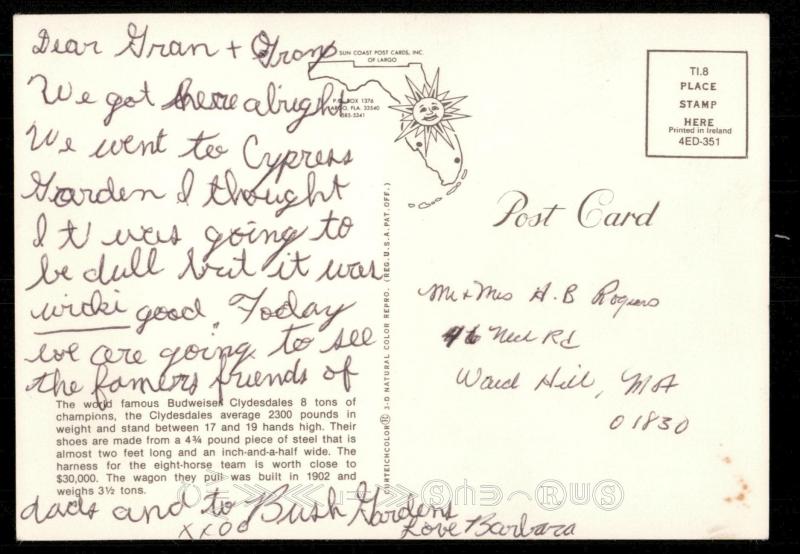 Dear Gran + Gramp
We got here alright
We went to Cypress
Garden I thought
It was going to
be dull but it was
wicki good. Today
we are going to see
the famers friends of
dads and to Bush Gardens
xxoo
Love Barbara
SUN COAST POST CARDS, INC.
OF LARGO
P.O. BOX 1376
LARGO, FLA. 33540
585-5341
The world famous Budweiser Clydesdales 8 tons of
champions, the Clydesdales average 2300 pounds in
weight and stand between 17 and 19 hands high. Their
shoes are made from a 4¾ pound piece of steel that is
almost two feet long and an inch-and-a-half wide. The
harness for the eight-horse team is worth close to
$30,000. The wagon they pull was built in 1902 and
weighs 3½ tons.
CURTEICHCOLOR® 3-D NATURAL COLOR REPRO. (REG. U.S.A. PAT. OFF.)
TI.8
PLACE
STAMP
HERE
Printed in Ireland
4ED-351
Post Card
Mr + Mrs H.B Rogers
46 Rd
Ward Hill, MA
01830
R US